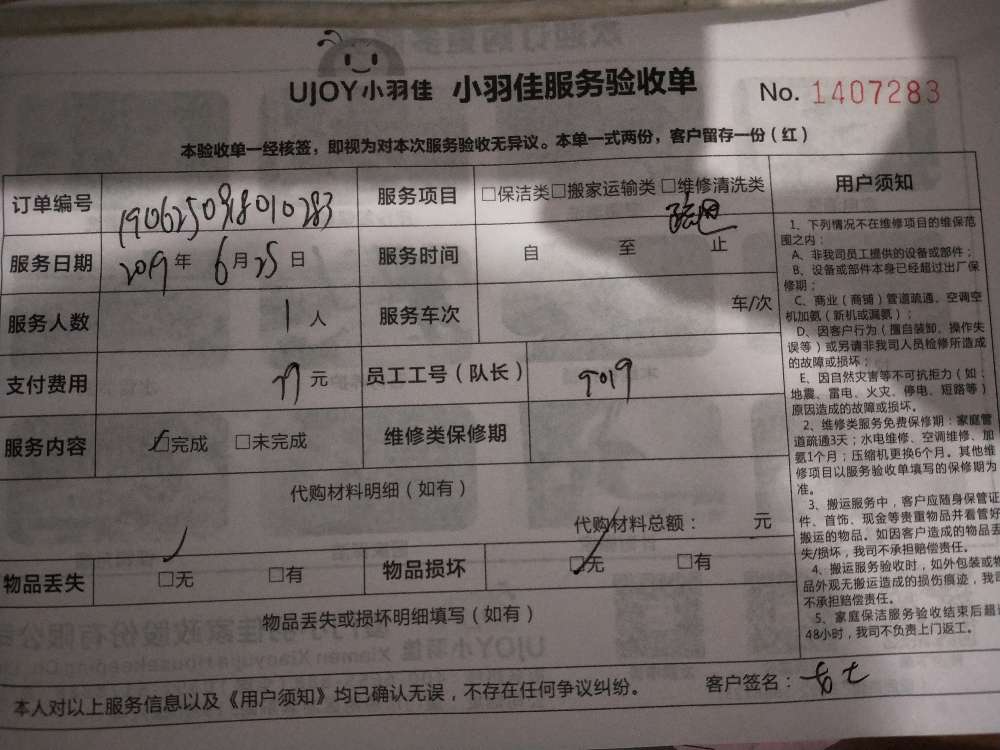 UJOY小羽佳 小羽佳服务验收单 No. 1407283
本验收单一经核签，即视为对本次服务验收无异议。本单一式两份，客户留存一份（红）
订单编号 服务项目 □保洁类□搬家运输类 □维修清洗类
服务日期 2019年 6月25日 服务时间 自 至 止
服务人数 1人 服务车次 车/次
支付费用 元 员工工号（队长） 9019
服务内容 ☑完成 □未完成 维修类保修期
代购材料明细（如有）
代购材料总额： 元
物品丢失 ☑无 □有 物品损坏 ☑无 □有
物品丢失或损坏明细填写（如有）
本人对以上服务信息以及《用户须知》均已确认无误，不存在任何争议纠纷。 客户签名：
用户须知
1、下列情况不在维修项目的维保范
围之内：
A、非我司员工提供的设备或部件；
B、设备或部件本身已经超过出厂保
修期；
C、商业（商铺）管道疏通、空调空
机加氨（新机或漏氨）；
D、因客户行为（擅自装卸、操作失
误等）或另请非我司人员检修所造成
的故障或损坏；
E、因自然灾害等不可抗拒力（如：
地震、雷电、火灾、停电、短路等）
原因造成的故障或损坏。
2、维修类服务免费保修期：家庭管
道疏通3天；水电维修、空调维修、加
氨1个月；压缩机更换6个月。其他维
修项目以服务验收单填写的保修期为
准。
3、搬运服务中，客户应随身保管证
件、首饰、现金等贵重物品并看管好
搬运的物品。如因客户造成的物品丢
失/损坏，我司不承担赔偿责任。
4、搬运服务验收时，如外包装或物
品外观无搬运造成的损伤痕迹，我司
不承担赔偿责任。
5、家庭保洁服务验收结束后超过
48小时，我司不负责上门返工。